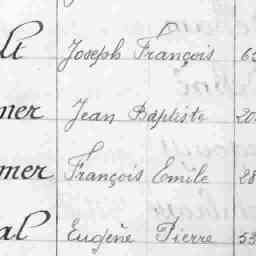 lt Joseph François 6
mer Jean Baptiste 20
mer François Emile 28
al Eugène Pierre 53